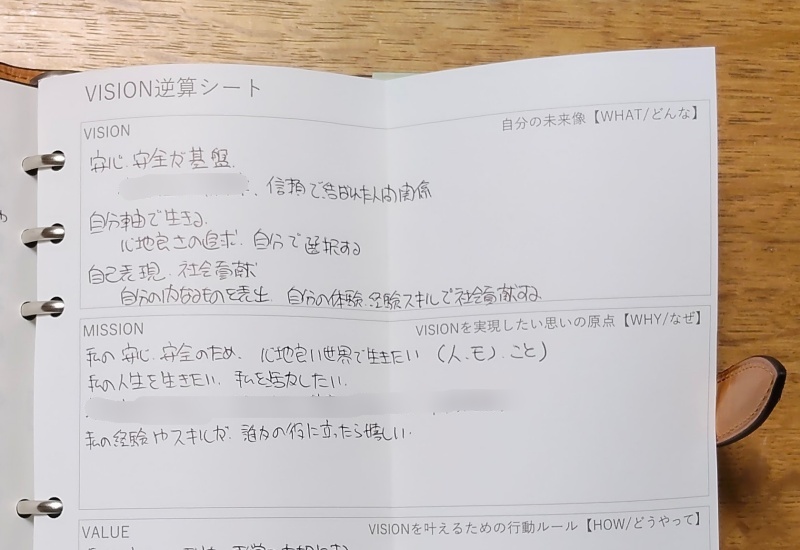 VISION逆算シート
VISION
自分の未来像【WHAT/どんな】
安心.安全が基盤.
、信頼で結ばれた人間関係
自分軸で生きる.
心地良さの追求.自分で選択する
自己表現.社会貢献
自分の内なるものを表出.自分の体験.経験スキルで社会貢献する
MISSION
VISIONを実現したい思いの原点【WHY/なぜ】
私の安心.安全のため、心地良い世界で生きたい（人.モノ.こと）
私の人生を生きたい.私を活かしたい.
私の経験やスキルが、誰かの役に立ったら嬉しい.
VALUE
VISIONを叶えるための行動ルール【HOW/どうやって】